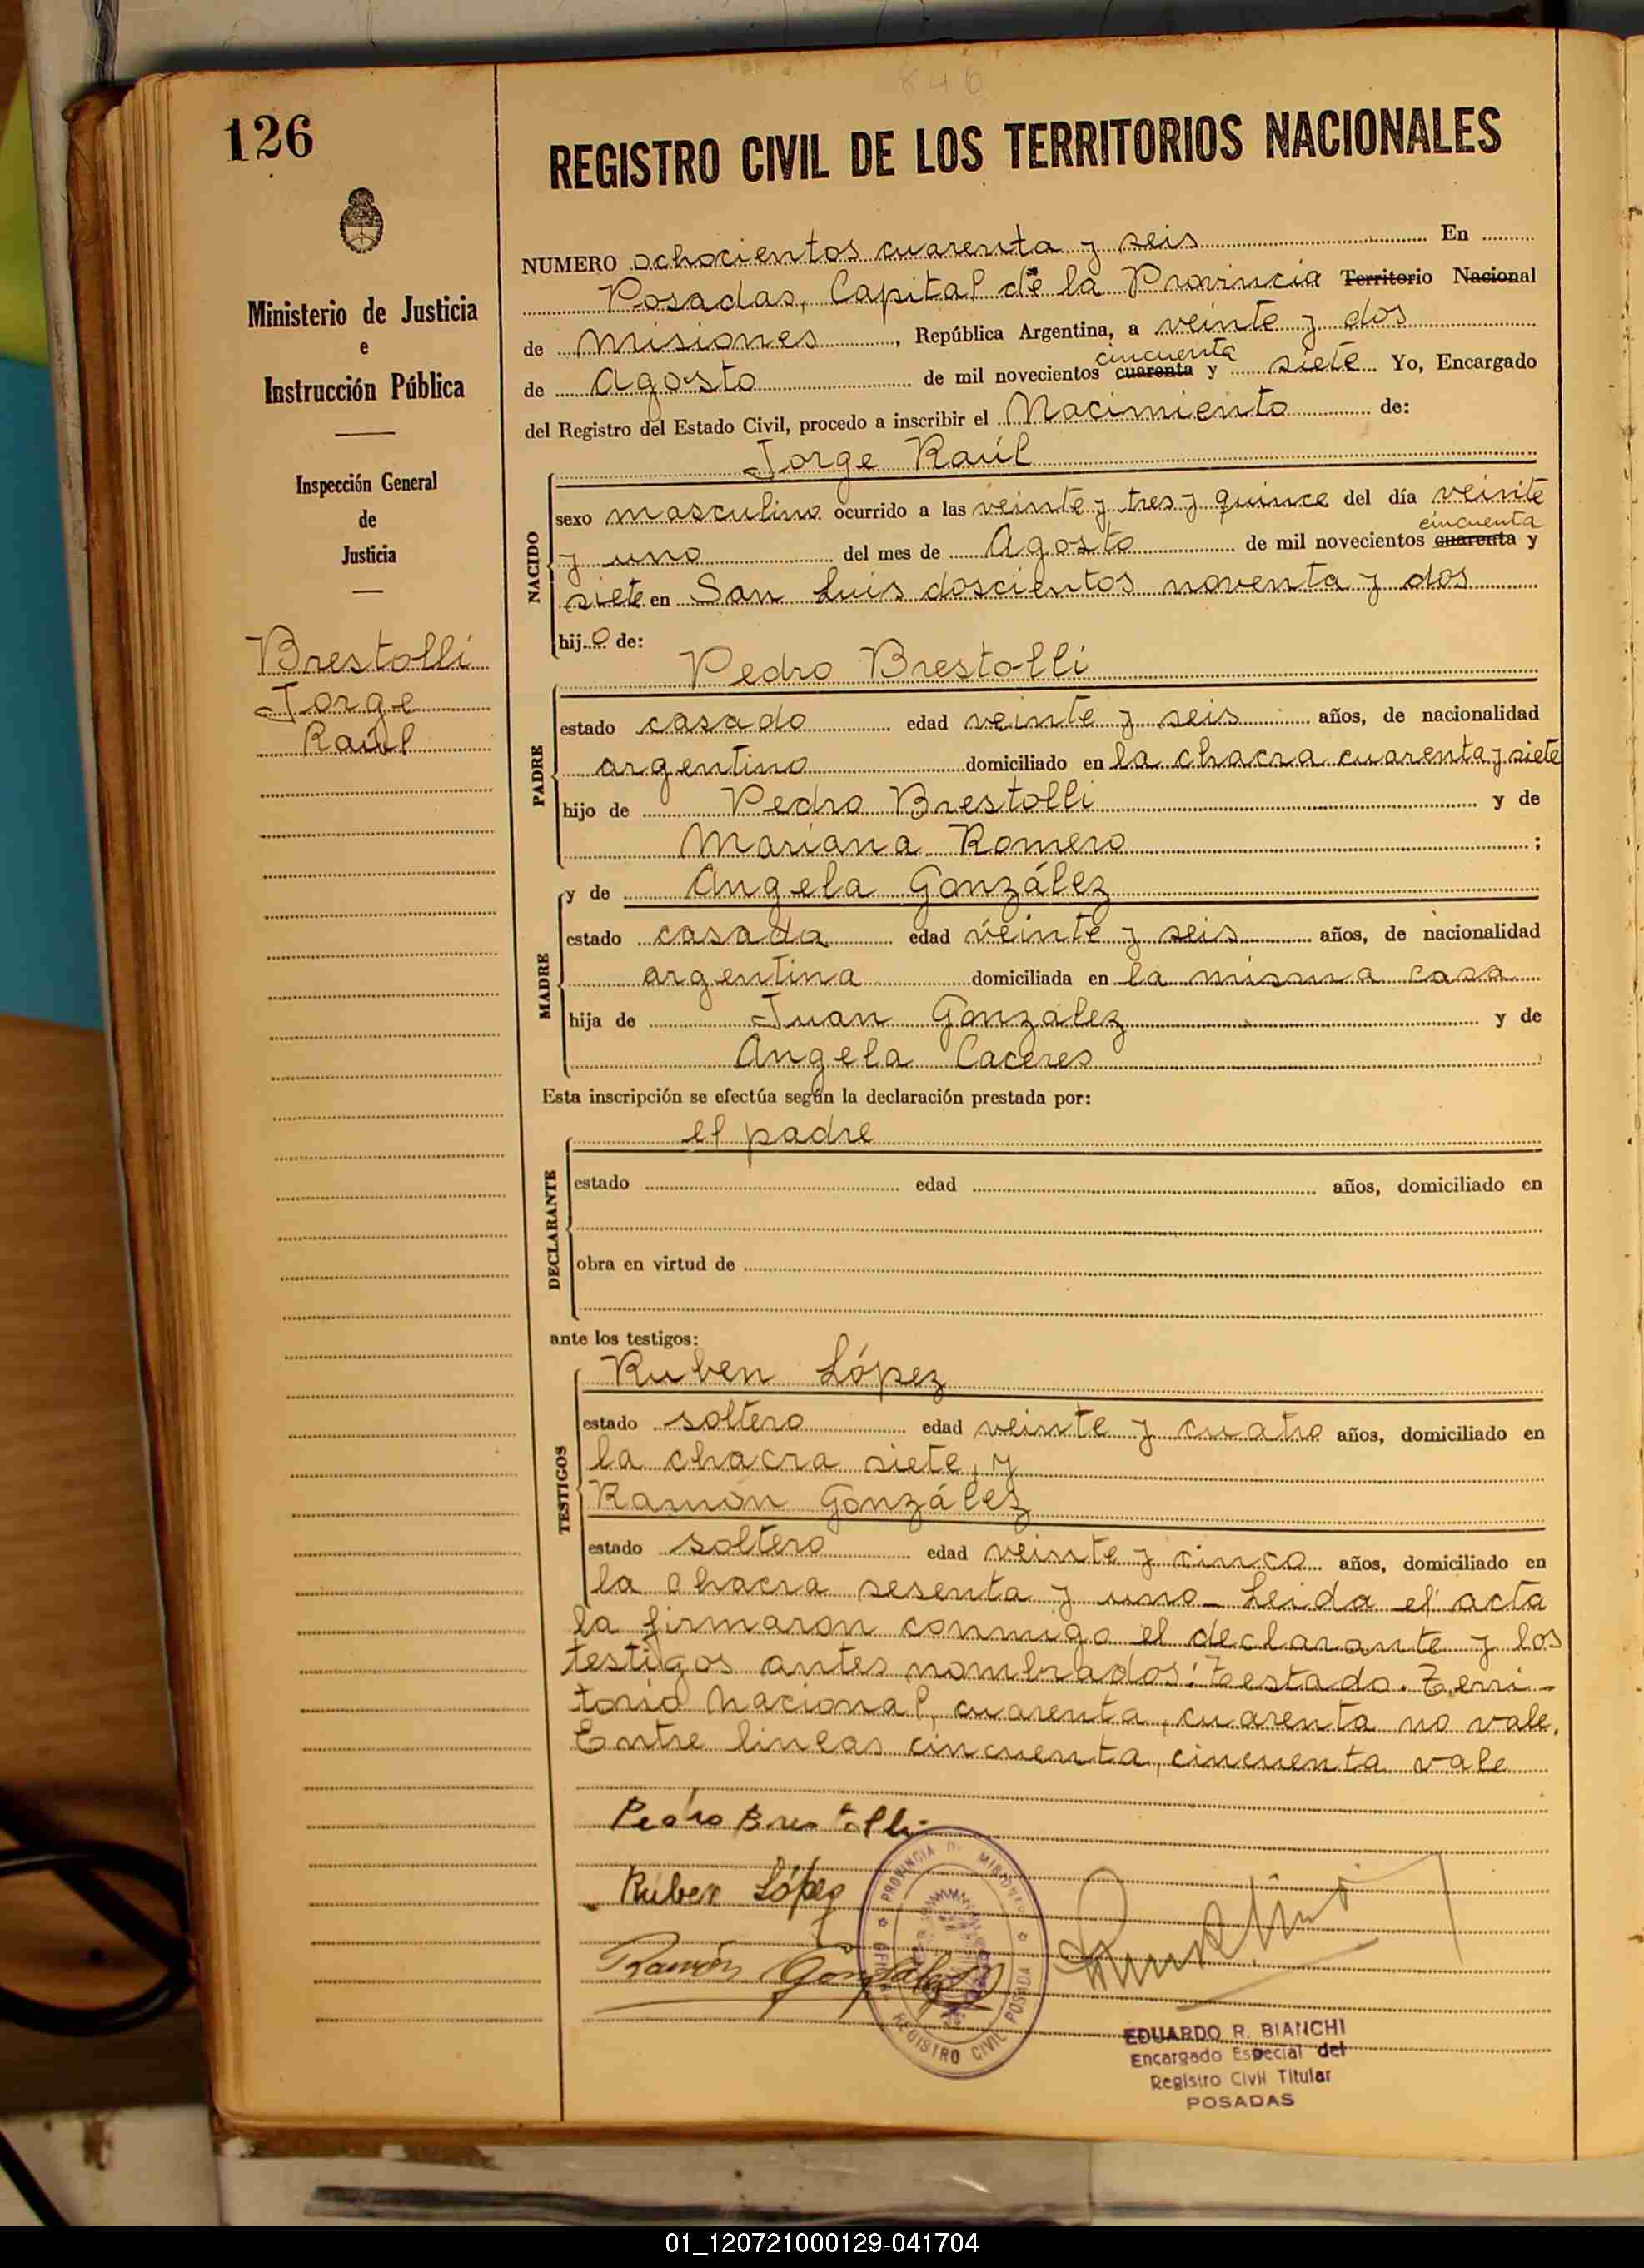 846
126
REGISTRO CIVIL DE LOS TERRITORIOS NACIONALES
Ministerio de Justicia
e
Instrucción Pública
Inspección General
de
Justicia
Brestolli
Jorge
Raúl
NUMERO ochocientos cuarenta y seis En
Posadas, Capital de la Provincia Territorio Nacional
de Misiones, República Argentina, a veinte y dos
cincuenta
de Agosto de mil novecientos cuarenta y siete Yo, Encargado
del Registro del Estado Civil, procedo a inscribir el Nacimiento de:
Jorge Raúl
NACIDO
sexo masculino ocurrido a las veinte y tres y quince del día veinte
cincuenta
y uno del mes de Agosto de mil novecientos cuarenta y
siete en San Luis doscientos noventa y dos
hijo de:
Pedro Brestolli
PADRE
estado casado edad veinte y seis años, de nacionalidad
argentino domiciliado en la chacra cuarenta y siete
hijo de Pedro Brestolli y de
Mariana Romero ;
y de Angela González
MADRE
estado casada edad veinte y seis años, de nacionalidad
argentina domiciliada en la misma casa
hija de Juan González y de
Angela Caceres
Esta inscripción se efectúa según la declaración prestada por:
el padre
DECLARANTE
estado edad años, domiciliado en
obra en virtud de
ante los testigos:
TESTIGOS
Ruben López
estado soltero edad veinte y cuatro años, domiciliado en
la chacra siete, y
Ramón González
estado soltero edad veinte y cinco años, domiciliado en
la chacra sesenta y uno_ Leida el acta
la firmaron conmigo el declarante y los
testigos antes nombrados: Testado. Terri-
torio Nacional, cuarenta, cuarenta no vale.
Entre lineas cincuenta, cincuenta vale
Pedro Brestolli
Ruben López
Ramón González
PROVINCIA DE MISIONES
REGISTRO CIVIL POSADAS
EDUARDO R. BIANCHI
Encargado Especial del
Registro Civil Titular
POSADAS
01_120721000129-041704